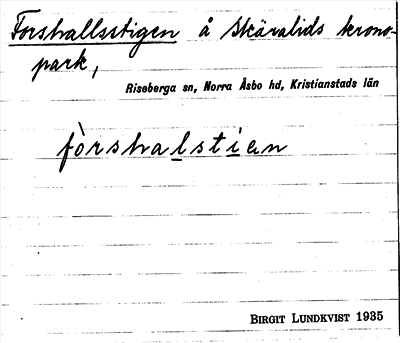 Forshallsstigen å Skäralids krono-
park,
Riseberga sn, Norra Åsbo hd, Kristianstads län
fòrshalstiɛn
BIRGIT LUNDKVIST 1935